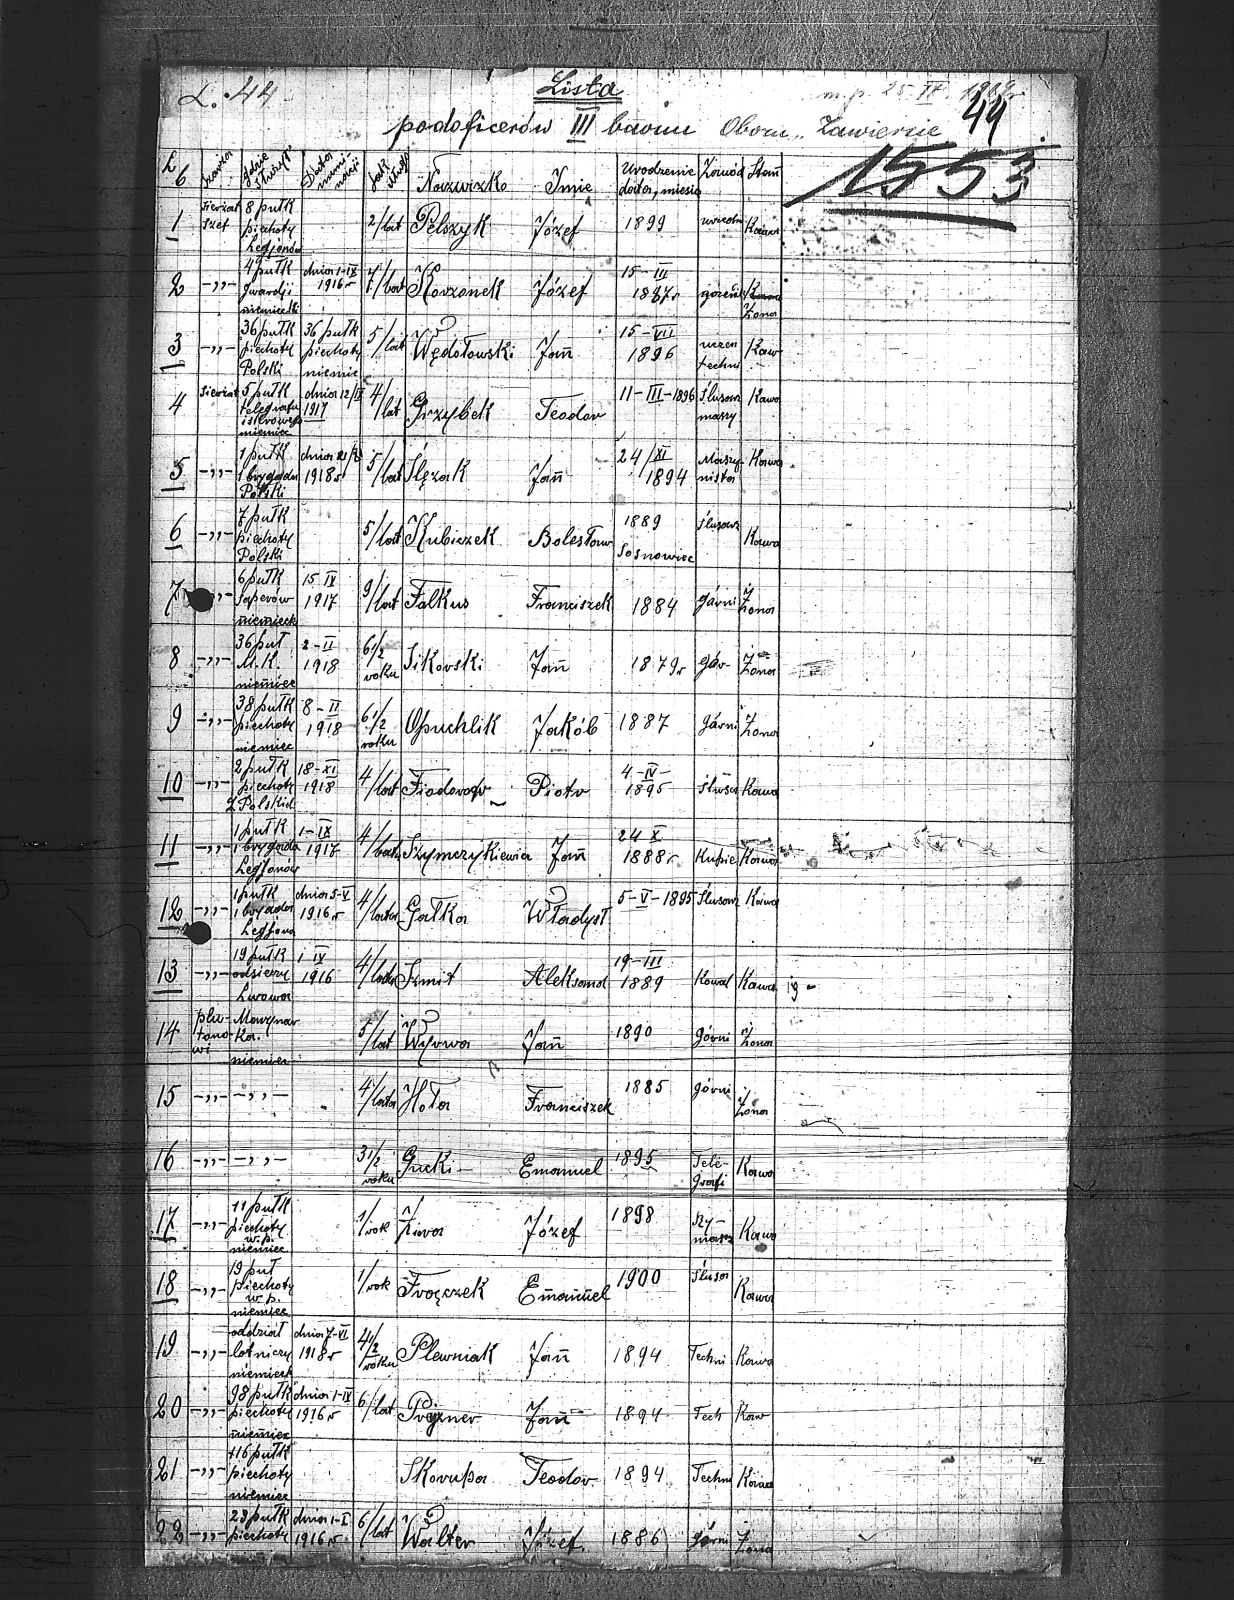 L. 44
Lista
m.p. 25
podoficerów III baonu Obozu „Zawiercie
44
1553
Nazwizko Imię Urodzenie Zawód Stan
data, miesią
1 Sierżat szef 8 pułk piechoty Legjonów 2/lat Pelszyk Józef 1899 Kawa
2 -„- 4 pułk gwardji niemiecki dnia 1-IX 1916r 7/lat Józef 15-III 1887r Żona
3 -„- 36 pułk piechoty Polski 36 pułk piechoty niemie 5/lat Wędołowski Jan 15-VII 1896 uczeń techni Kaw
4 Sierżat 5 pułk telegrafu niemiec dnia 12/IX 1917 4/lat Grzybek Teodor 11-III-1896 Ślusarz maszy Kawa
5 -„- 1 pułk 1 brygada Polski 1918r 5/lat Ślęzak Jan 24/XI 1894 Maszynista Kawa
6 -„- 7 pułk piechoty Polski 5/lat Kubiczek Bolesław 1889 Sosnowiec Ślusarz Kawa
7 -„- 6 pułk Saperów niemieck 15 IX 1917 9/lat Falkus Franciszek 1884 górni Żona
8 -„- 36 puł M.K. niemiec 2-II 1918 6 1/2 roku Sikorski Jan 1879r gór- Żona
9 -„- 38 pułk piechoty niemiec 8-II 1918 6 1/2 roku Opuchlik Jakób 1887 górni Żona
10 -„- 2 pułk piechoty Z Polskid 18-XI 1918 4/lat Piotr 4-IV-1895 Kawa
11 -„- 1 pułk 1 brygada Legjonów 1-IX 1917 4/lata Szymczykiewicz Jan 24 X 1888r Kupie Kawa
12 -„- 1 pułk 1 brygada Legjona dnia 5-V 1916r 4/lata Gałka Władysł 5-V-1895 Ślusarz Kawa
13 -„- 19 pułk odsieczy Lwowa 1 IV 1916 4/lata Szmit Aleksand 19-III 1889 Kowal Kawa
14 plutonowi Marynarka. niemiec 5/lat Wyrwa Jan 1890 górni Żona
15 -„- -„- 4/lata Hota Franciszek 1885 górni Żona
16 -„- -„- 3 1/2 roku Gucki Emanuel 1895 Telegrafi Kawa
17 -„- 11 pułk piechoty w.p. niemiec 1/rok Żiwa Józef 1898 Rymarz Kawa
18 -„- 19 puł piechoty w.p. niemiec 1/rok Frączek Emanuel 1900 Ślusar Kawa
19 -„- oddział lotniczy niemieck dnia 7-VI 1918r 4 1/2 roku Plewniak Jan 1894 Techni Kawa
20 -„- 98 pułk piechoty niemiec dnia 1-IV 1916r 6/lat Jan 1894 Tech Kaw
21 -„- 116 pułk piechoty niemiec Skorupa Teodor. 1894 Techni Kawa
22 -„- 23 pułk piechoty dnia 1-I 1916r 6/lat Walter Józef. 1886 górni Żona